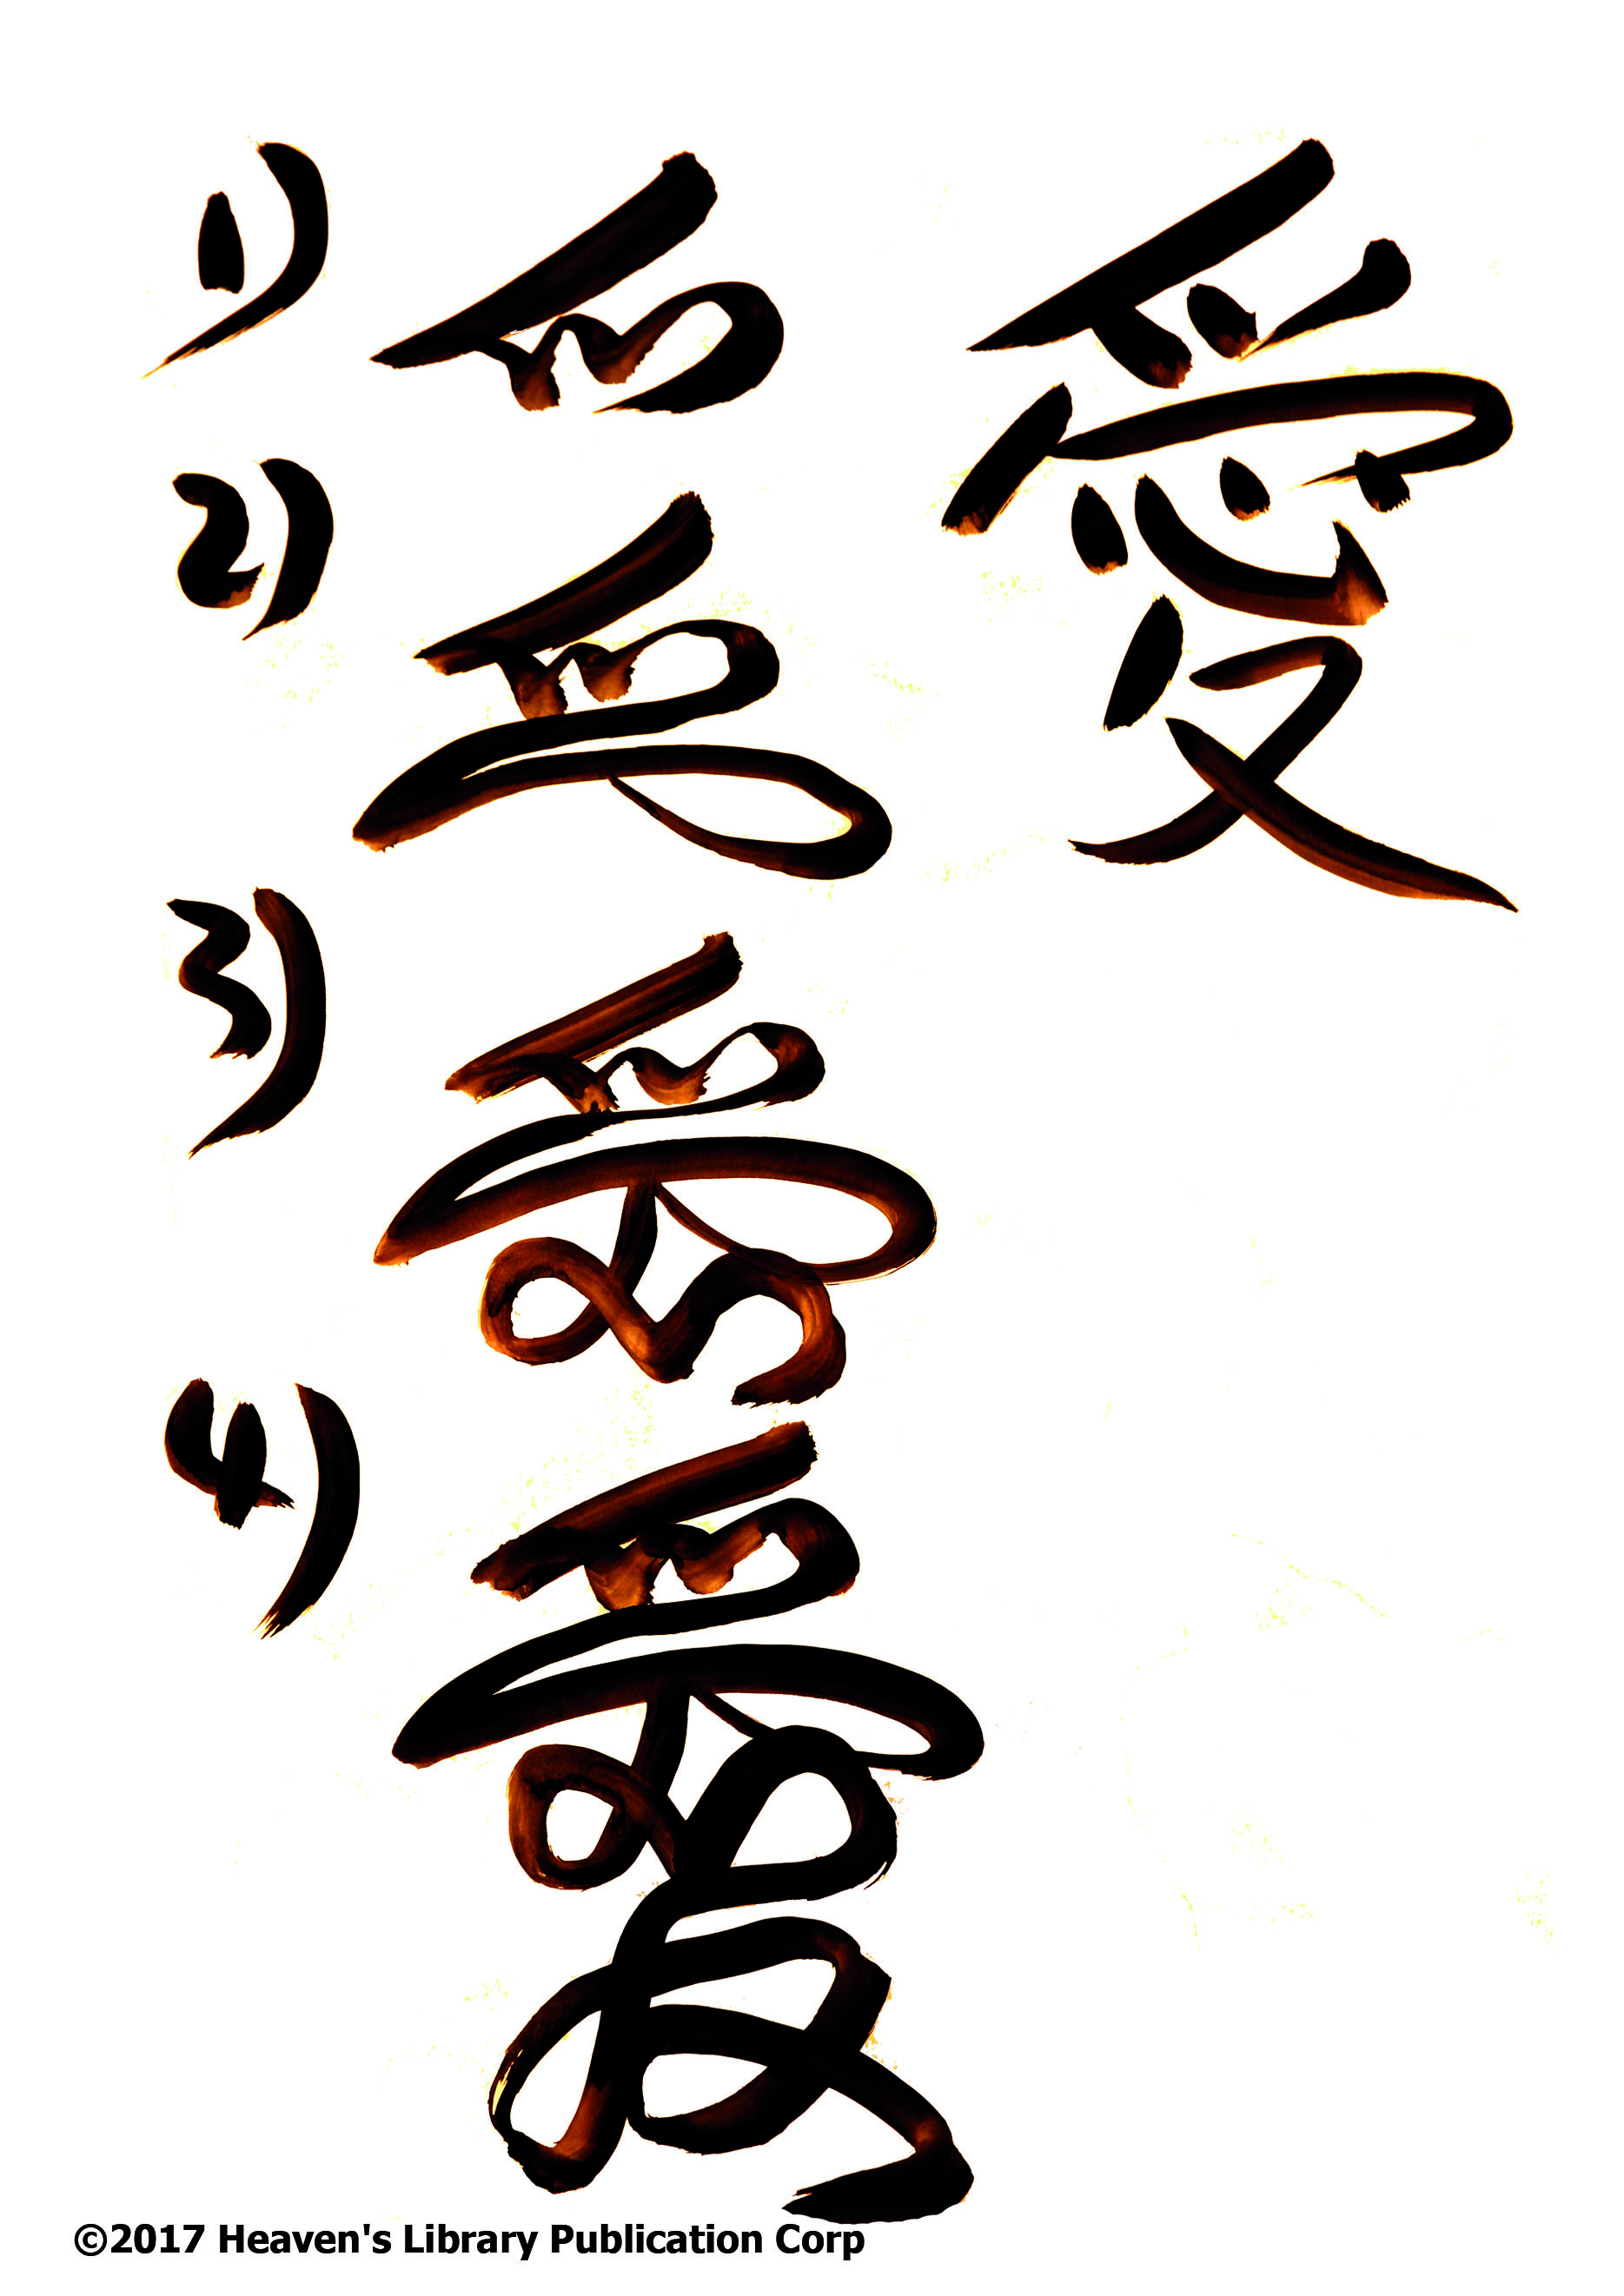 愛
1)
2)
3)
4) 愛
©2017 Heaven's Library Publication Corp